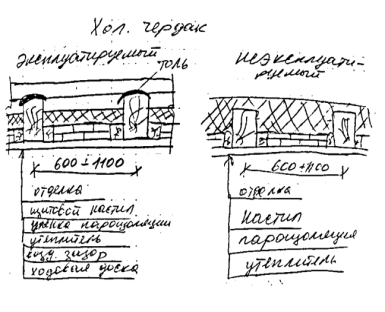 Хол. чердак
эксплуатируемый
толь
неэксплуати-
руемый
600÷1100
600÷1100
отделка
щитовой настил
пленка пароизоляции
утеплитель
возд. зазор
ходовая доска
отделка
настил
пароизоляция
утеплитель